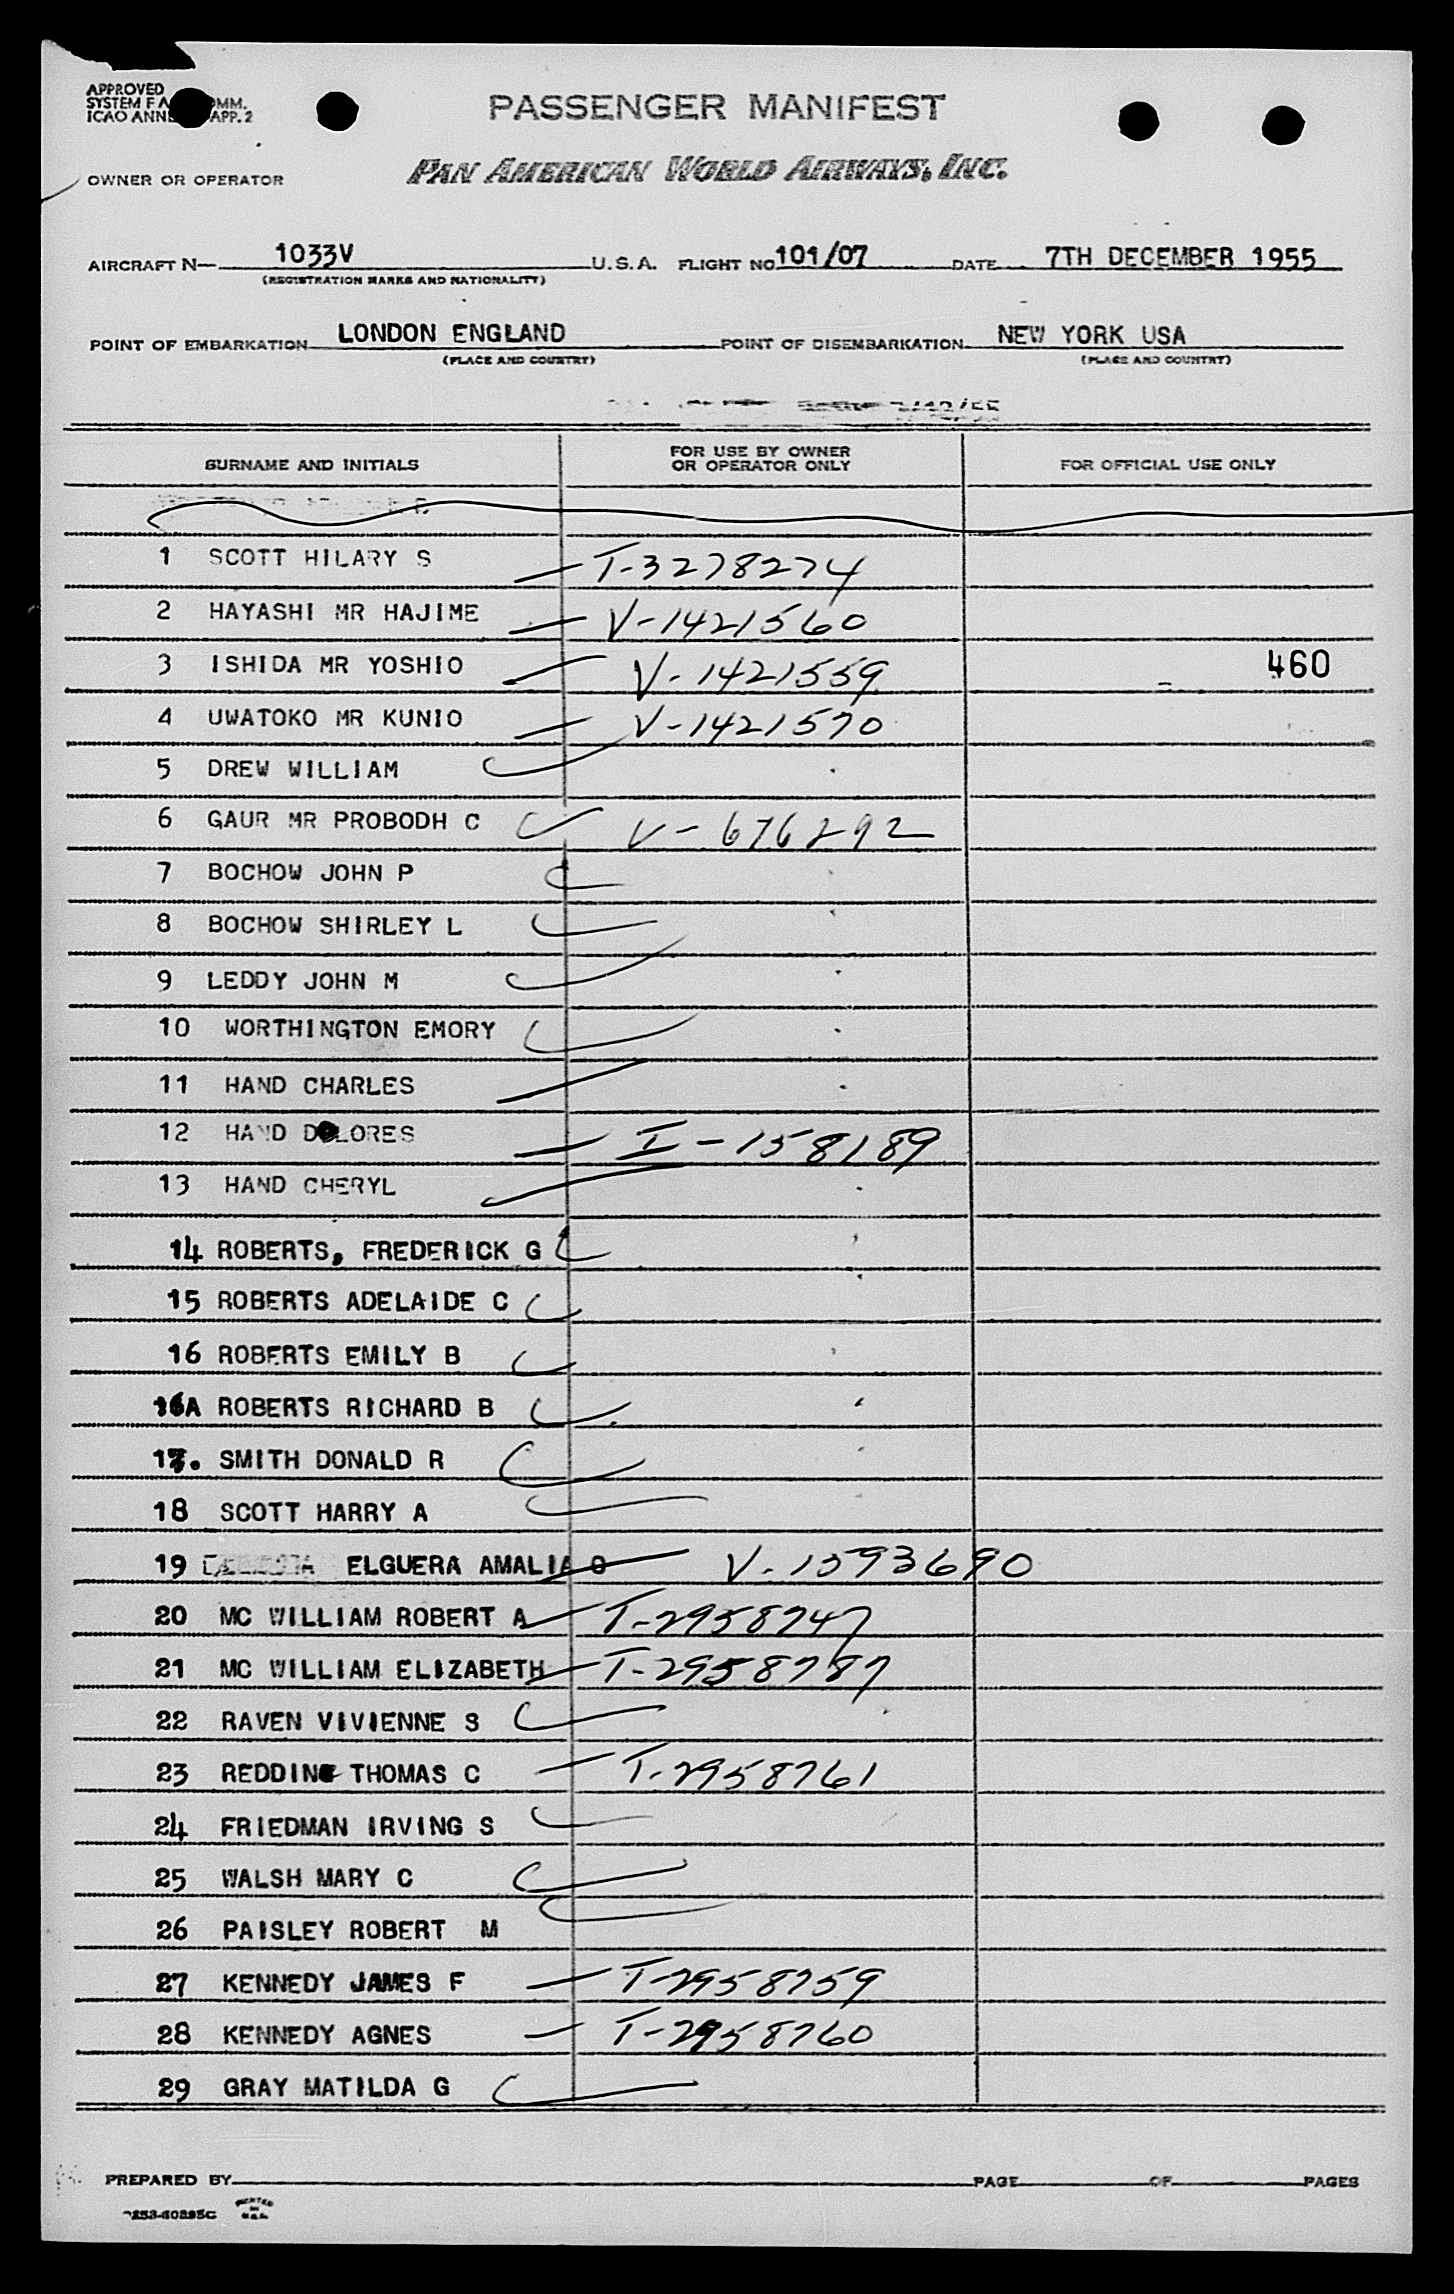 APPROVED
SYSTEM F A OMM.
ICAO ANNE APP. 2
PASSENGER MANIFEST
PAN AMERICAN WORLD AIRWAYS, INC.
OWNER OR OPERATOR
AIRCRAFT N— 1033V U.S.A. FLIGHT NO 101/07 DATE 7TH DECEMBER 1955
(REGISTRATION MARKS AND NATIONALITY)
POINT OF EMBARKATION LONDON ENGLAND POINT OF DISEMBARKATION NEW YORK USA
(PLACE AND COUNTRY) (PLACE AND COUNTRY)
SURNAME AND INITIALS FOR USE BY OWNER OR OPERATOR ONLY FOR OFFICIAL USE ONLY
1 SCOTT HILARY S T-3278274
2 HAYASHI MR HAJIME V-1421560
3 ISHIDA MR YOSHIO V-1421559 460
4 UWATOKO MR KUNIO V-1421570
5 DREW WILLIAM
6 GAUR MR PROBODH C V-676292
7 BOCHOW JOHN P
8 BOCHOW SHIRLEY L
9 LEDDY JOHN M
10 WORTHINGTON EMORY
11 HAND CHARLES
12 HAND DOLORES I-158189
13 HAND CHERYL
14 ROBERTS, FREDERICK G
15 ROBERTS ADELAIDE C
16 ROBERTS EMILY B
16A ROBERTS RICHARD B
17. SMITH DONALD R
18 SCOTT HARRY A
19 ELGUERA AMALIA G V-1593690
20 MC WILLIAM ROBERT A T-2958747
21 MC WILLIAM ELIZABETH T-2958787
22 RAVEN VIVIENNE S
23 REDDING THOMAS C T-2958761
24 FRIEDMAN IRVING S
25 WALSH MARY C
26 PAISLEY ROBERT M
27 KENNEDY JAMES F T-2958759
28 KENNEDY AGNES T-2958760
29 GRAY MATILDA G
PREPARED BY PAGE OF PAGES
PRINTED IN U.S.A.